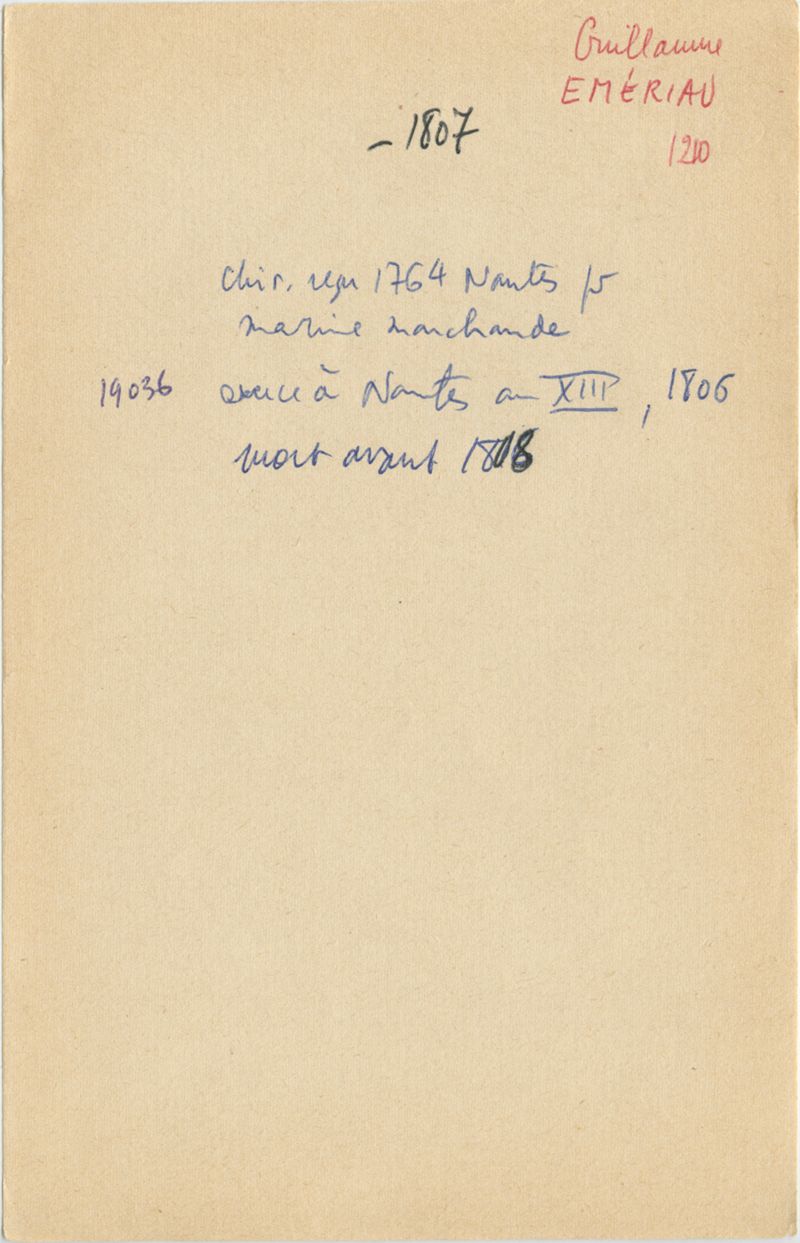 Guillaume
EMÉRIAU
1210
– 1807
Chir. reçu 1764 Nantes pr
marine marchande
19036 exerce à Nantes an XIII, 1806
mort avant 1808